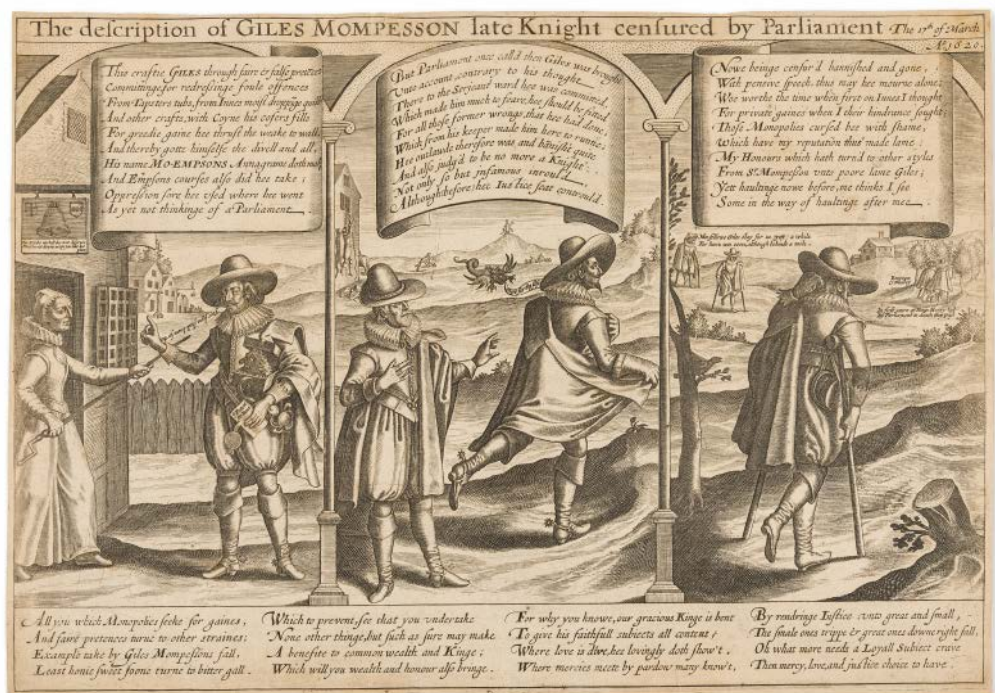 The description of GILES MOMPESSON late Knight censured by Parliament The 17th of March
Ao. 1620.
This craftie GILES through faire & false pretences
Committinge, for redressinge foule offences
From Tapsters tubs, from Innes most droppige guilt
And other crafts, with Coyne his cofers fills
For greedie gaine hee thrust the weake to wall,
And thereby gott himselfe the divell and all,
His name MO-EMPSONS Annagrame doth make
And Empsons courses also did hee take;
Oppression sore hee used where hee went
As yet not thinkinge of a Parliament.
But Parliament once call'd then Giles was brought
Unto account, contrary to his thought.
There to the Serjeant ward hee was committed,
Which made him much to feare, hee should be fitted
For all those former wrongs, that hee had done;
Which from his keeper made him here to runne;
Hee outlawde therefore was and banisht quite
And also judg'd to be no more a Knight;
Not only so but infamous inrould,
Although before, hee Iustice seat contrould.
Nowe beinge censur'd bannished and gone,
With pensive speech, thus may hee mourne alone;
Woe worthe the time when first on Innes I thought
For private gaines when I their hindrance sought,
Those Monopolies cursed bee with shame,
Which have my reputation thus made lame;
My Honours which hath turn'd to other styles
From Sr. Mompesson unto poore lame Giles;
Yett haultinge nowe before, me thinks I see
Some in the way of haultinge after mee
All you which Monopolies seeke for gaines,
And faire pretences turne to other straines;
Example take by Giles Mompessons fall,
Least honie sweet soone turne to bitter gall.
Which to prevent, see that you undertake
None other thinge, but such as sure may make
A benefite to common wealth and Kinge;
Which will you wealth and honour also bringe.
For why you knowe, our gracious Kinge is bent
To give his faithfull subjects all content;
Where love is dwe, hee lovingly doth show't,
Where mercies meete by pardon many know't,
By rendringe Iustice unto great and small,
The smale ones trippe & great ones downe right fall,
Oh what more needs a Loyall Subiect crave
Then mercy, love, and justice choice to have.